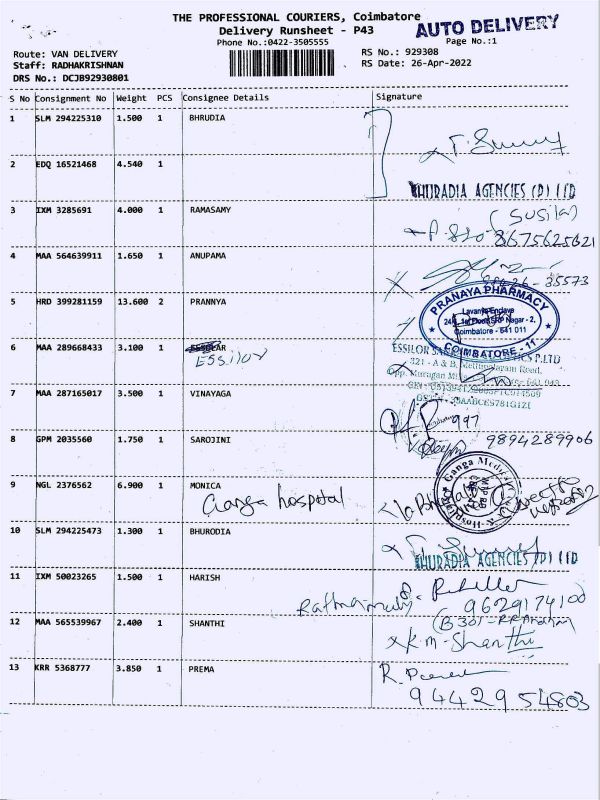 THE PROFESSIONAL COURIERS, Coimbatore
AUTO DELIVERY
Delivery Runsheet - P43
Phone No.:0422-3505555
Page No.:1
Route: VAN DELIVERY
RS No.: 929308
Staff: RADHAKRISHNAN
RS Date: 26-Apr-2022
DRS No.: DCJB92930801
S No Consignment No Weight PCS Consignee Details Signature
1 SLM 294225310 1.500 1 BHRUDIA
2 EDQ 16521468 4.540 1
HURADIA AGENCIES (P) LTD
3 IXM 3285691 4.000 1 RAMASAMY
(Susila)
8675625621
4 MAA 564639911 1.650 1 ANUPAMA
35573
5 HRD 399281159 13.600 2 PRANNYA
PRANAYA PHARMACY
Lavanya Enclave
Nagar - 2,
Coimbatore - 641 011
COIMBATORE - 11
6 MAA 289668433 3.100 1
Essilor
ESSILOR
P.LTD
321 - A & B, Mettupalayam Road,
Opp. Murugan
7 MAA 287165017 3.500 1 VINAYAGA
997
8 GPM 2035560 1.750 1 SAROJINI
9894289906
9 NGL 2376562 6.900 1 MONICA
Ganga hospital
Ganga Medical
10 SLM 294225473 1.300 1 BHURODIA
HURADIA AGENCIES (P) LTD
11 IXM 50023265 1.500 1 HARISH
9629174100
12 MAA 565539967 2.400 1 SHANTHI
K.M-Shanthi
13 KRR 5368777 3.850 1 PREMA
9442954803